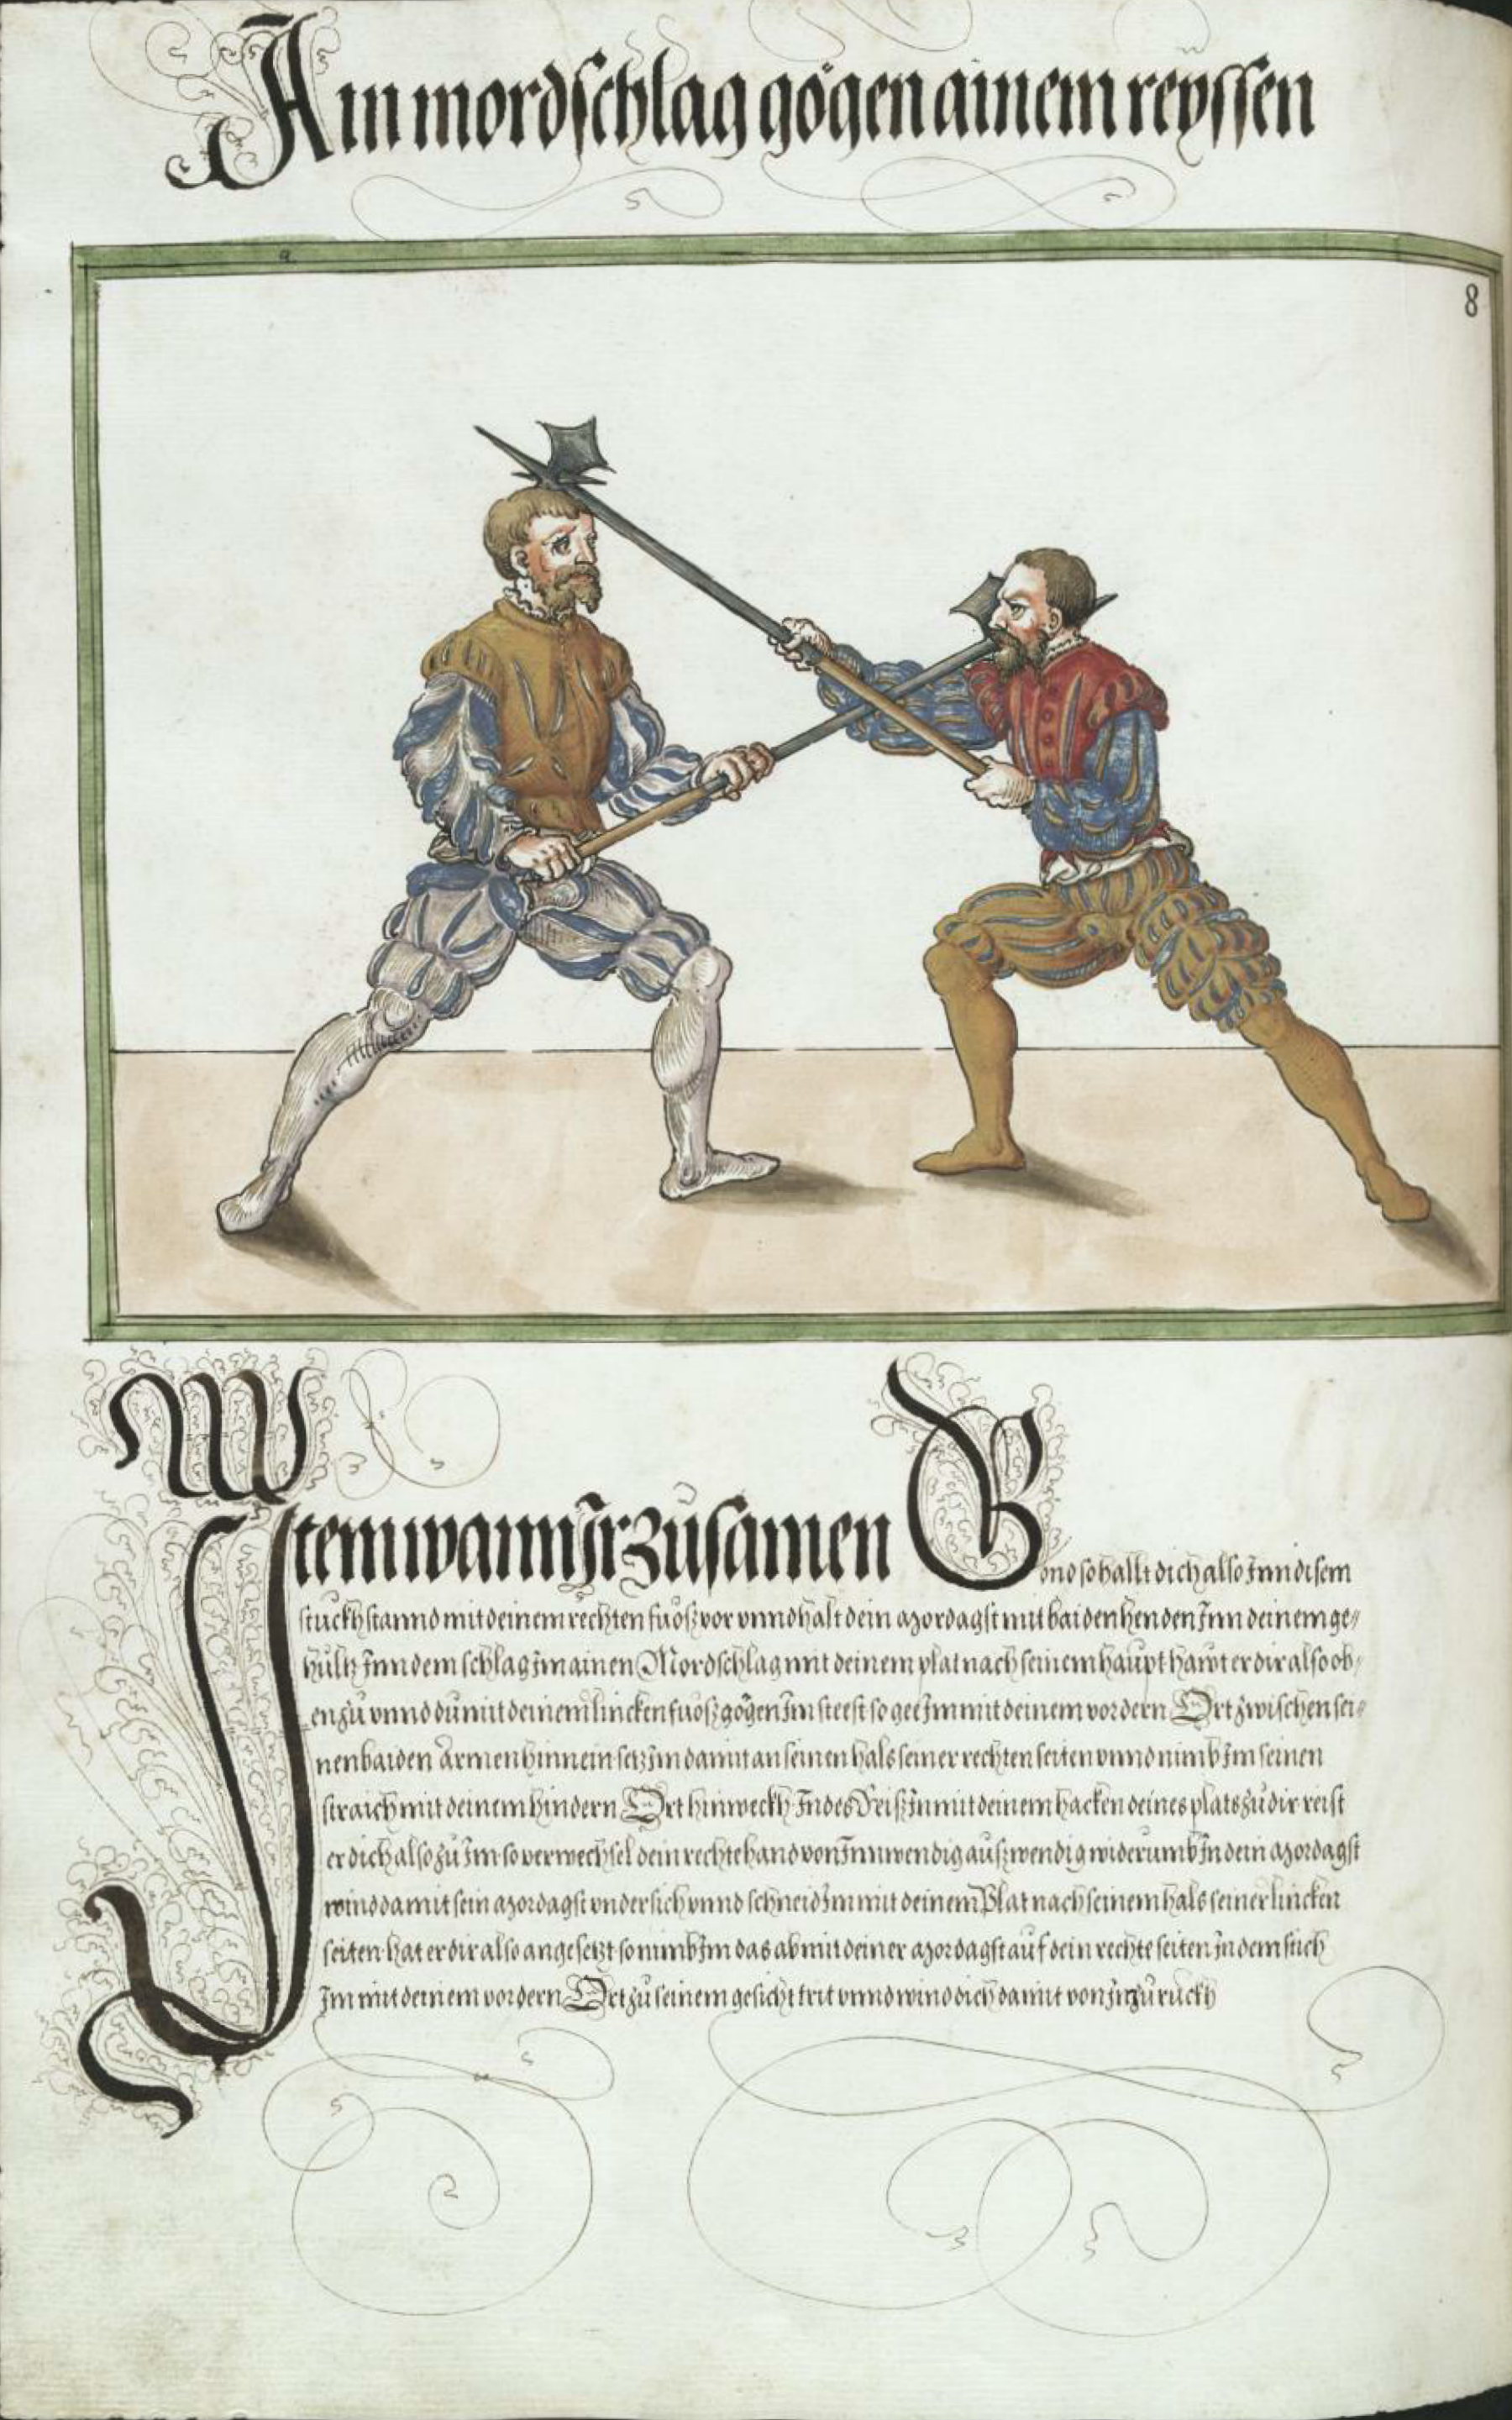 Ain mordschlag gögen ainem reyssen
a
8
Item wann Ir zusamen Gond so hallt dich also Inn disem
stuckh stannd mit deinem rechten fuosz vor vnnd halt dein mordagst mit baiden henden Inn deinem ge„
hultz Inn dem schlag Im ainen Mordschlag mit deinem plat nach seinem haupt hawt er dir also ob„
en zu vnnd du mit deinem lincken fuosz gögen Im steest so gee Im mit deinem vordern Ort zwischen sei„
nen baiden Armen hinnein setz Im damit an seinen hals seiner rechten seiten vnnd nimb Im seinen
straich mit deinem hindern Ort hinweckh Indes Reisz In mit deinem hacken deines plats zu dir reist
er dich also zu Im so verwechsel dein rechte hand von Innwendig auszwendig widerumb In dein mordagst
wind damit sein mordagst vnder sich vnnd schneid Im mit deinem Plat nach seinem hals seiner lincken
seiten hat er dir also angesetzt so nimb Im das ab mit deiner mordagst auf dein rechte seiten In dem stich
Im mit deinem vordern Ort zu seinem gesicht trit vnnd wind dich damit von Im zuruckh